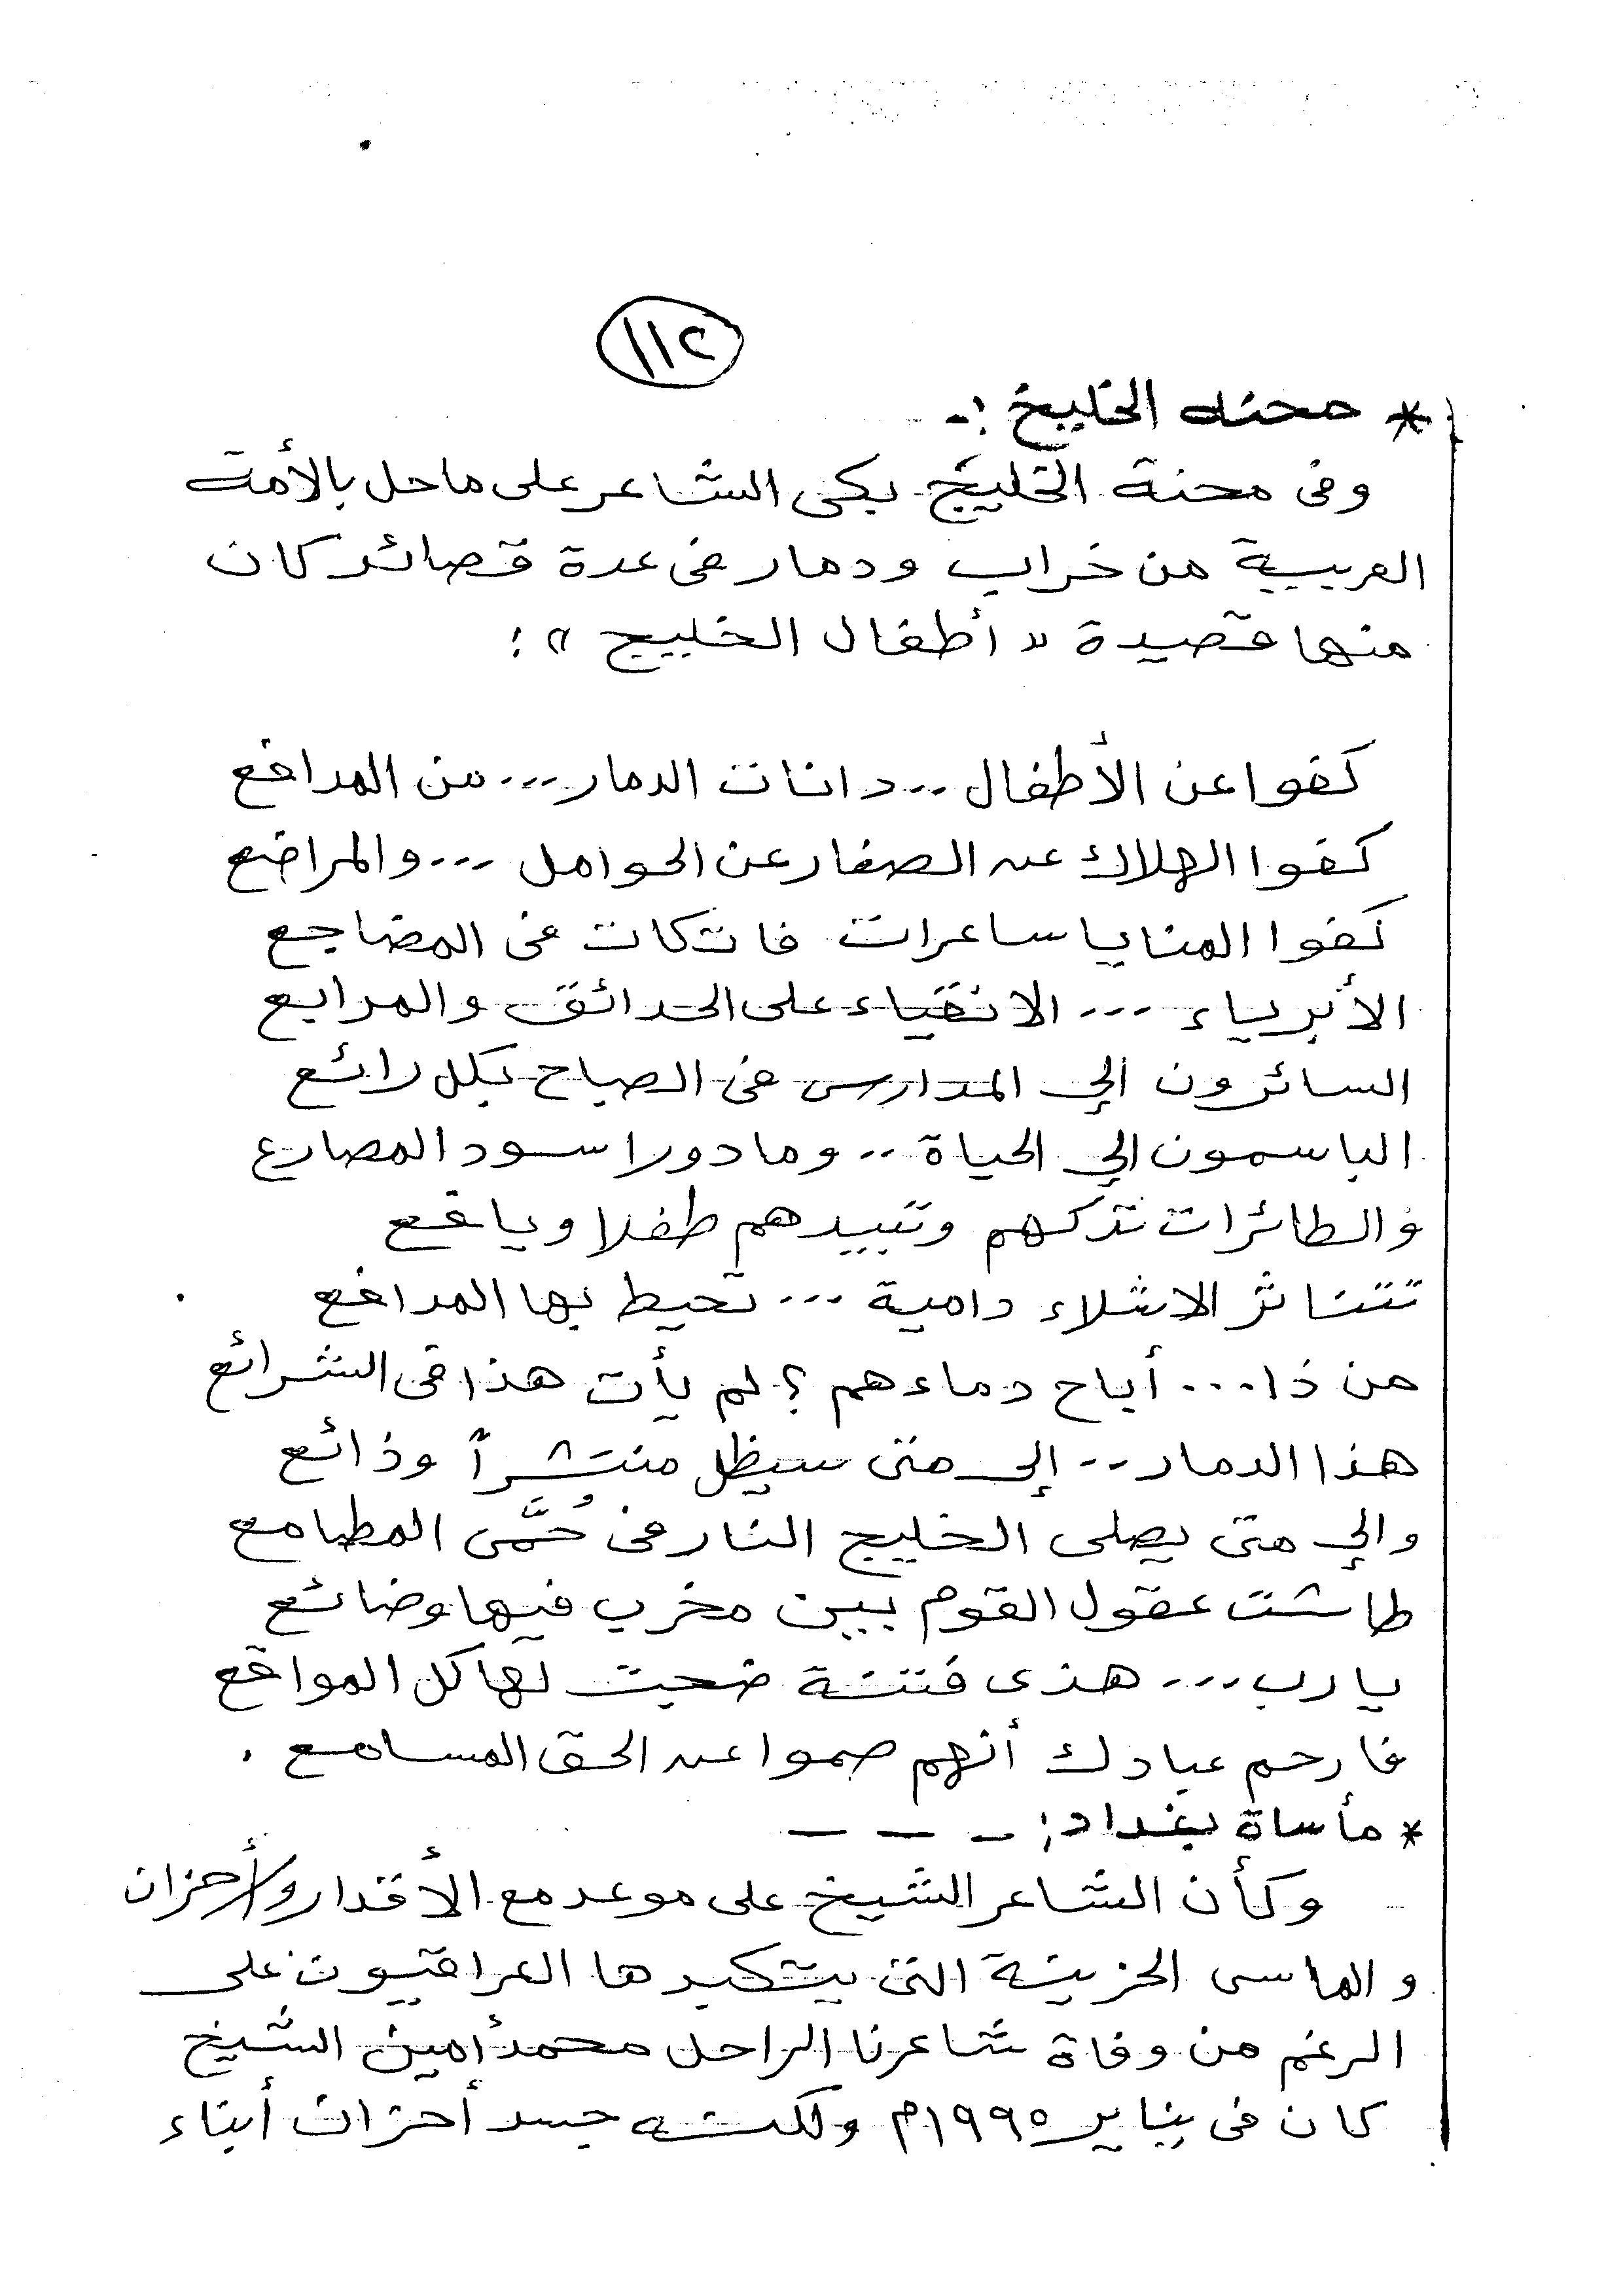 ١١٢
* محنه الخليج :-
وفى محنة الخليج بكى الشاعر على ما حل بالأمة
العربية من خراب ودمار فى عدة قصائد كان
منها قصيدة « أطفال الخليج » :
كفوا عن الأطفال .. دانات الدمار ... من المدافع
كفوا الهلاك عن الصغار عن الحوامل ... والمراضع
كفوا المنايا ساعرات فاتكات فى المضاجع
الأبرياء ... الانقياء على الحدائق والمرابع
السائرون الي المدارس فى الصباح بكل رائع
الباسمون الي الحياة .. وما دورا سود المصارع
والطائرات تدكهم وتبيدهم طفلا ويافع
تتناثر الاشلاء دامية ... تحيط بها المدافع
من ذا ... أباح دماءهم ؟ لم يأت هذا فى الشرائع
هذا الدمار .. إلى متى سيظل منتشراً وذائع
والي متى يصلى الخليج النار فى حُمَّى المطامع
طاشت عقول القوم بين مخرب فيها وضائع
يا رب ... هذى فتنة ضجت لها كل المواقع
فارحم عبادك أنهم صموا عن الحق المسامع .
* مأساة بغداد :- — — —
وكأن الشاعر الشيخ على موعد مع الأقدار وأحزان
والماسى الحزينة التى يتكبدها العراقيون على
الرغم من وفاة شاعرنا الراحل محمد أمين الشيخ
كان فى يناير ١٩٩٥م ولكنه جسد أحزان أبناء